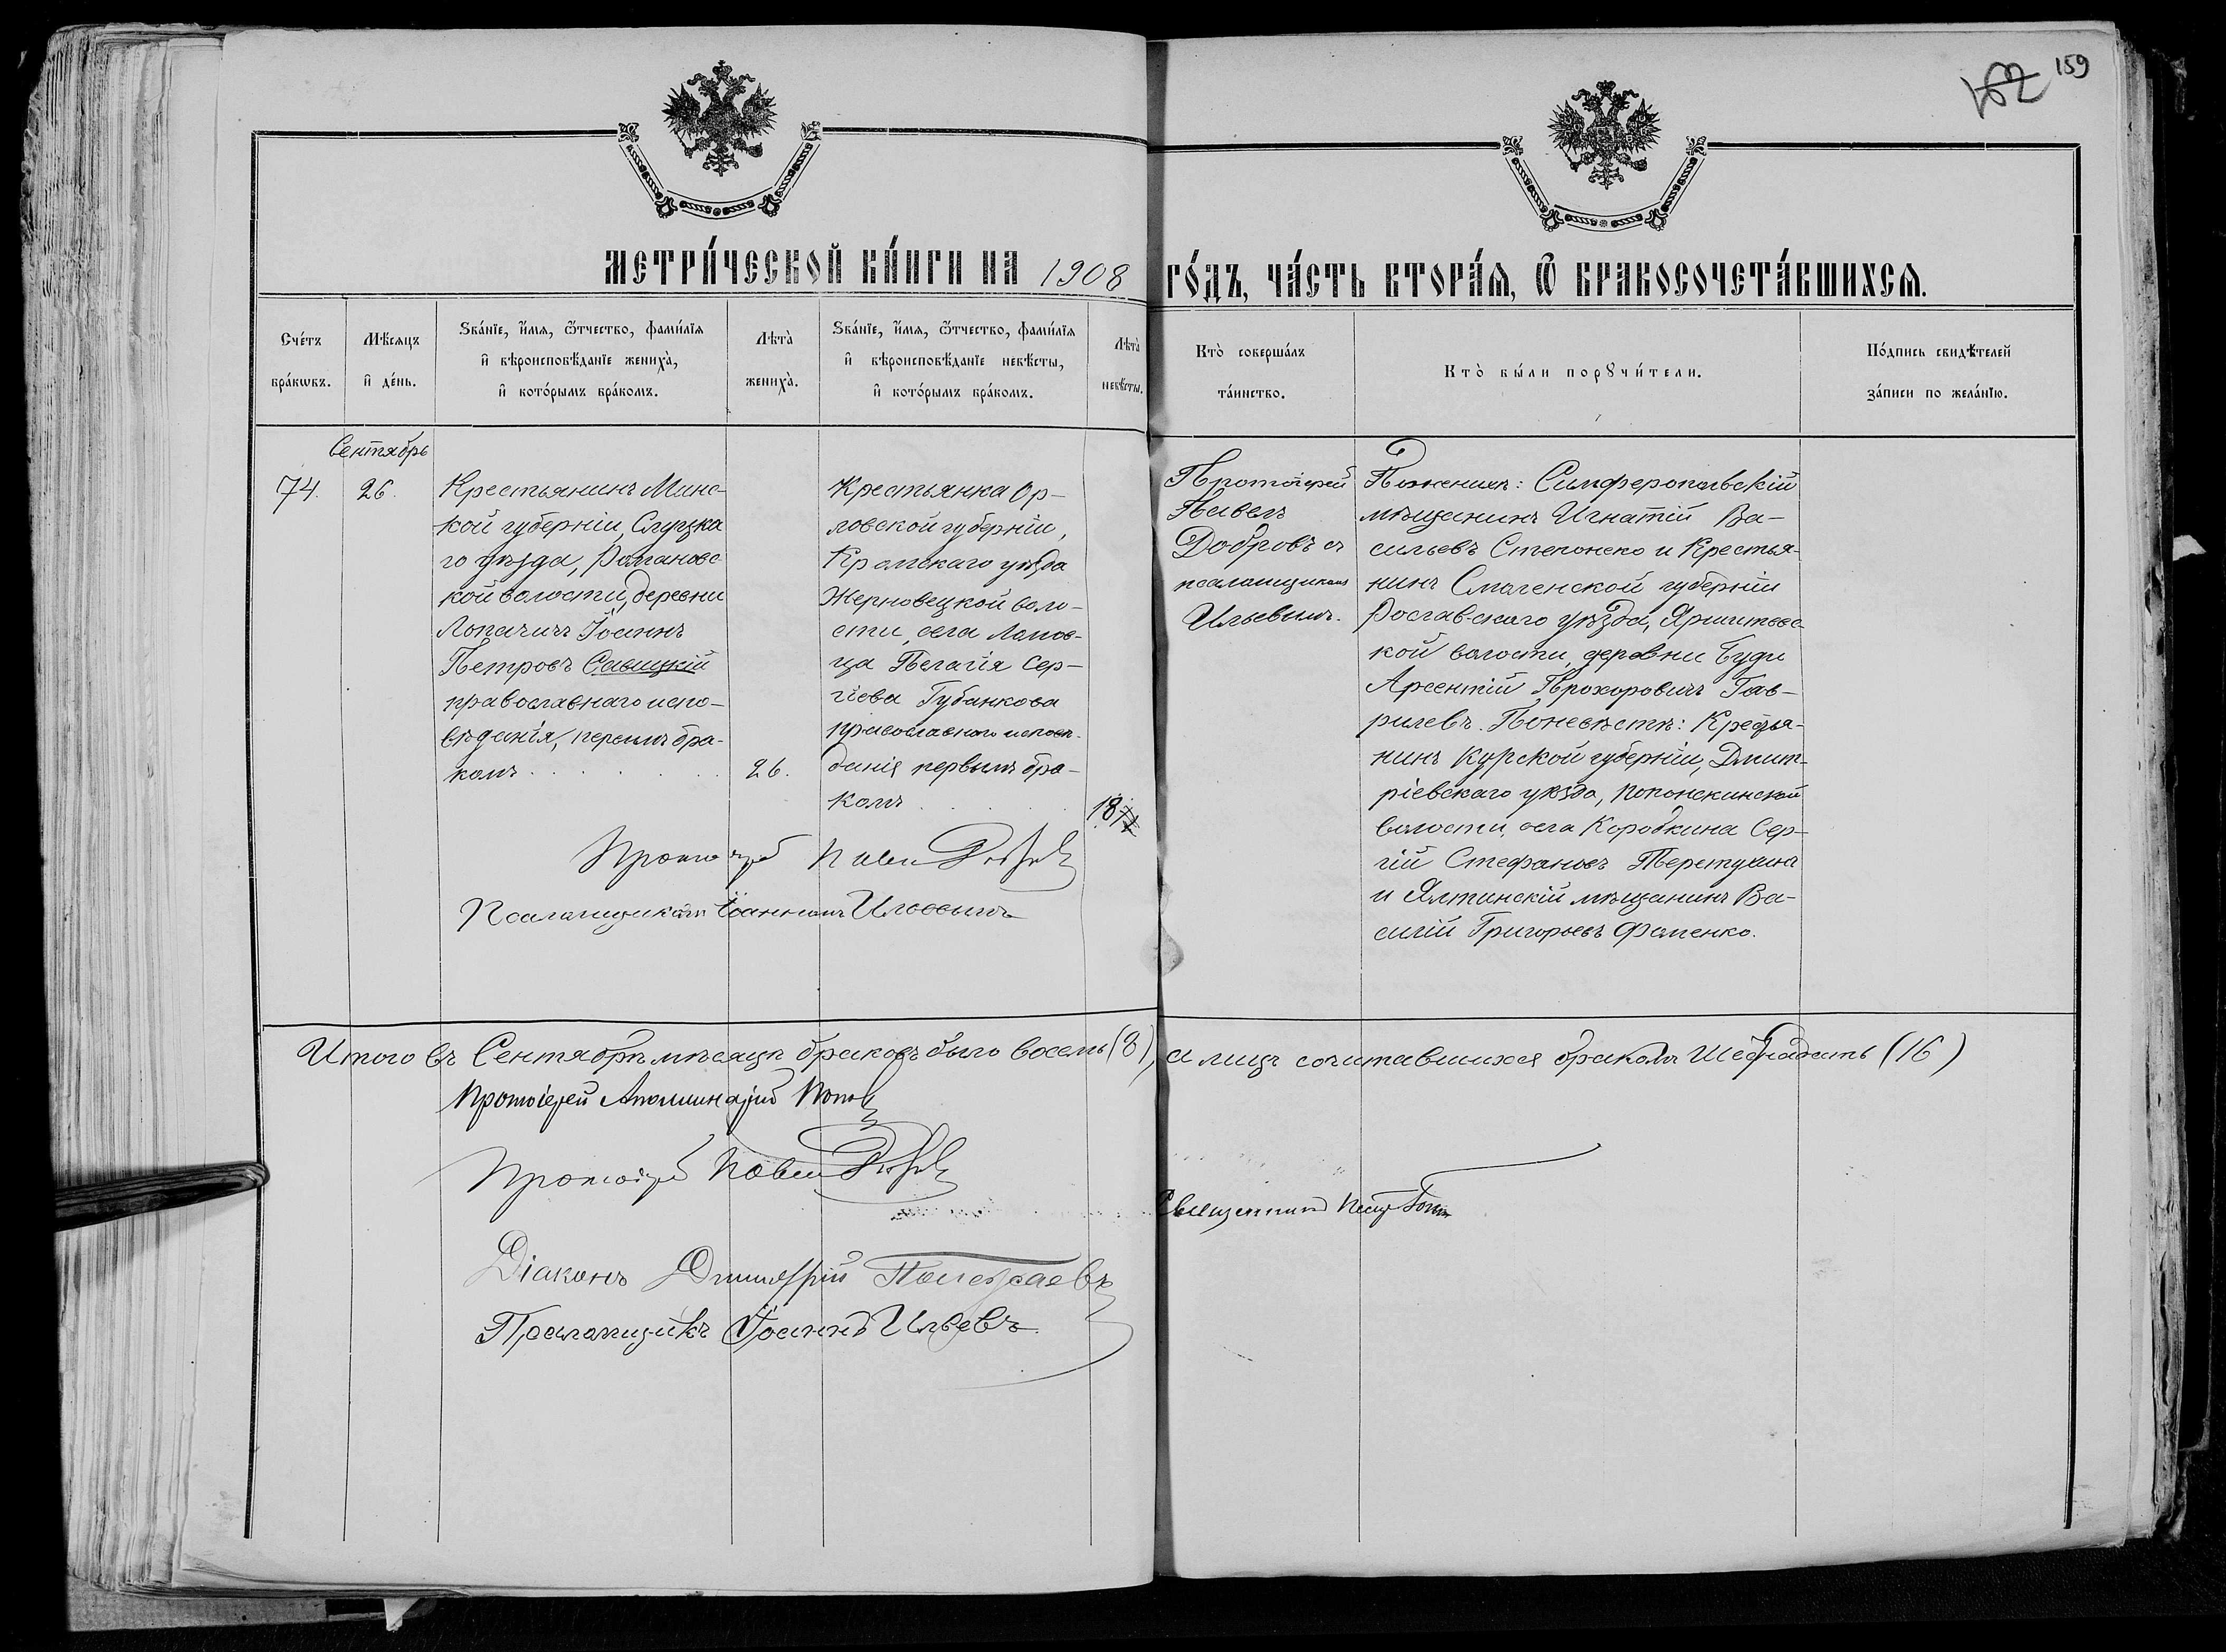 162 159
МЕТРИ́ЧЕСКОЙ КНИ́ГИ НА 1908 ГО́ДЪ, ЧА́СТЬ ВТОРА́Ѧ, Ѿ БРАКОСОЧЕТА́ВШИХСѦ.
Сче́тъ
бра́кѡвъ.
Мѣ́сяцъ
и҆ де́нь.
Ѕва́нїе, и҆́мѧ, ѻ҆́тчество, фами́лїѧ
и҆ вѣроисповѣ́данїе жениха̀,
и҆ кото́рымъ бра́комъ.
Лѣта̀
жениха̀.
Ѕва́нїе, и҆́мѧ, ѻ҆́тчество, фами́лїѧ
и҆ вѣроисповѣ́данїе невѣ́сты,
и҆ кото́рымъ бра́комъ.
Лѣта̀
невѣ́сты.
Кто̀ соверша́лъ
та́инство.
Кто̀ бы́ли порꙋчи́тели.
По́дпись свидѣ́телей
за́писи по жела́нїю.
Сентябрь
74. 26.
Крестьянинъ Минс-
кой губерніи, Слуцка
го уѣзда, Романовс
кой волости, деревни
Лопачичъ Іоаннъ
Петровъ Савицкій
православнаго испо-
вѣданія, первымъ бра-
комъ
26.
Крестьянка Ор-
ловской губерніи,
Кромскаго уѣзда
Жерновецкой воло-
сти, села Лапов-
ца Пелагія Сер-
гіева Губанкова
православнаго исповѣ-
данія первымъ бра-
комъ
18
Протоіерей
Павелъ
Добровъ съ
псаломщикомъ
Ильевымъ.
По женихѣ: Симферопольскій
мѣщанинъ Игнатій Ва-
сильевъ Степоненко и Крестья-
нинъ Смоленской губерніи
Рославскаго уѣзда, Яршитовс-
кой волости, деревни Буди
Арсентій Прохоровичъ Гав-
рилевъ. По невѣстѣ: Крестья-
нинъ Курской губерніи, Дмит-
ріевскаго уѣзда, Попонекинской
волости, села Коробкина Сер-
гій Стефановъ Перетухинъ
и Ялтинскій мѣщанинъ Ва-
силій Григорьевъ Фоменко.
Протоіерей Павелъ Добровъ
Псаломщикомъ Іоанномъ Ильевымъ
Итого въ Сентябрѣ мѣсяцѣ браковъ было восемь (8), а лицъ сочитавшихся бракомъ Шестнадцать (16)
Протоіерей Аполлинарій Поповъ
Протоіерей Павелъ Добровъ
Священникъ Петръ
Діаконъ Димитрій
Псаломщикъ Іоаннъ Ильевъ